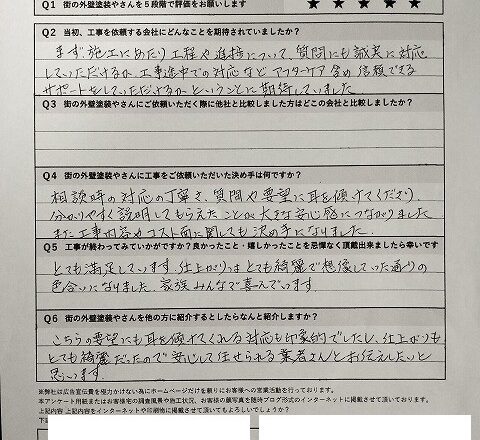 Q1 街の外壁塗装やさんを5段階で評価をお願いします
★ ★ ★ ★ ★
Q2 当初、工事を依頼する会社にどんなことを期待されていましたか?
まず施工にあたり工程や進捗について、質問にも誠実に対応
していただけるか、工事途中での対応など アフターケア含め信頼できる
サポートをしていただけるか ということに期待していました
Q3 街の外壁塗装やさんにご依頼いただく際に他社と比較しました方はどこの会社と比較しましたか?
Q4 街の外壁塗装やさんに工事をご依頼いただいた決め手は何ですか?
相談時の対応の丁寧さ、質問や要望に耳を傾けてくださり、
分かりやすく説明してもらえたことが大きな安心感につながりました
また工事内容やコスト面に関しても決め手になりました.
Q5 工事が終わってみていかがですか?良かったこと・嬉しかったことを忌憚なく頂戴出来ましたら幸いです
とても満足しています.仕上がりはとても綺麗で想像していた通りの
色合いになりました.家族みんなで喜んでいます
Q6 街の外壁塗装やさんを他の方に紹介するとしたらなんと紹介しますか?
こちらの要望にも耳を傾けてくれる対応も印象的でしたし、仕上がりも
とても綺麗だったので安心して任せられる業者さんとお伝えしたいと
思います
※弊社は広告宣伝費を極力かけない為にホームページだけを頼りにお客様への営業活動を行っております。
本アンケート用紙またはお客様宅の調査風景や施工状況、お客様の顔写真を随時ブログ形式のインターネットに掲載させて頂いております。
上記内容 上記内容をインターネットや印刷物に掲載させて頂いてもよろしいでしょうか?